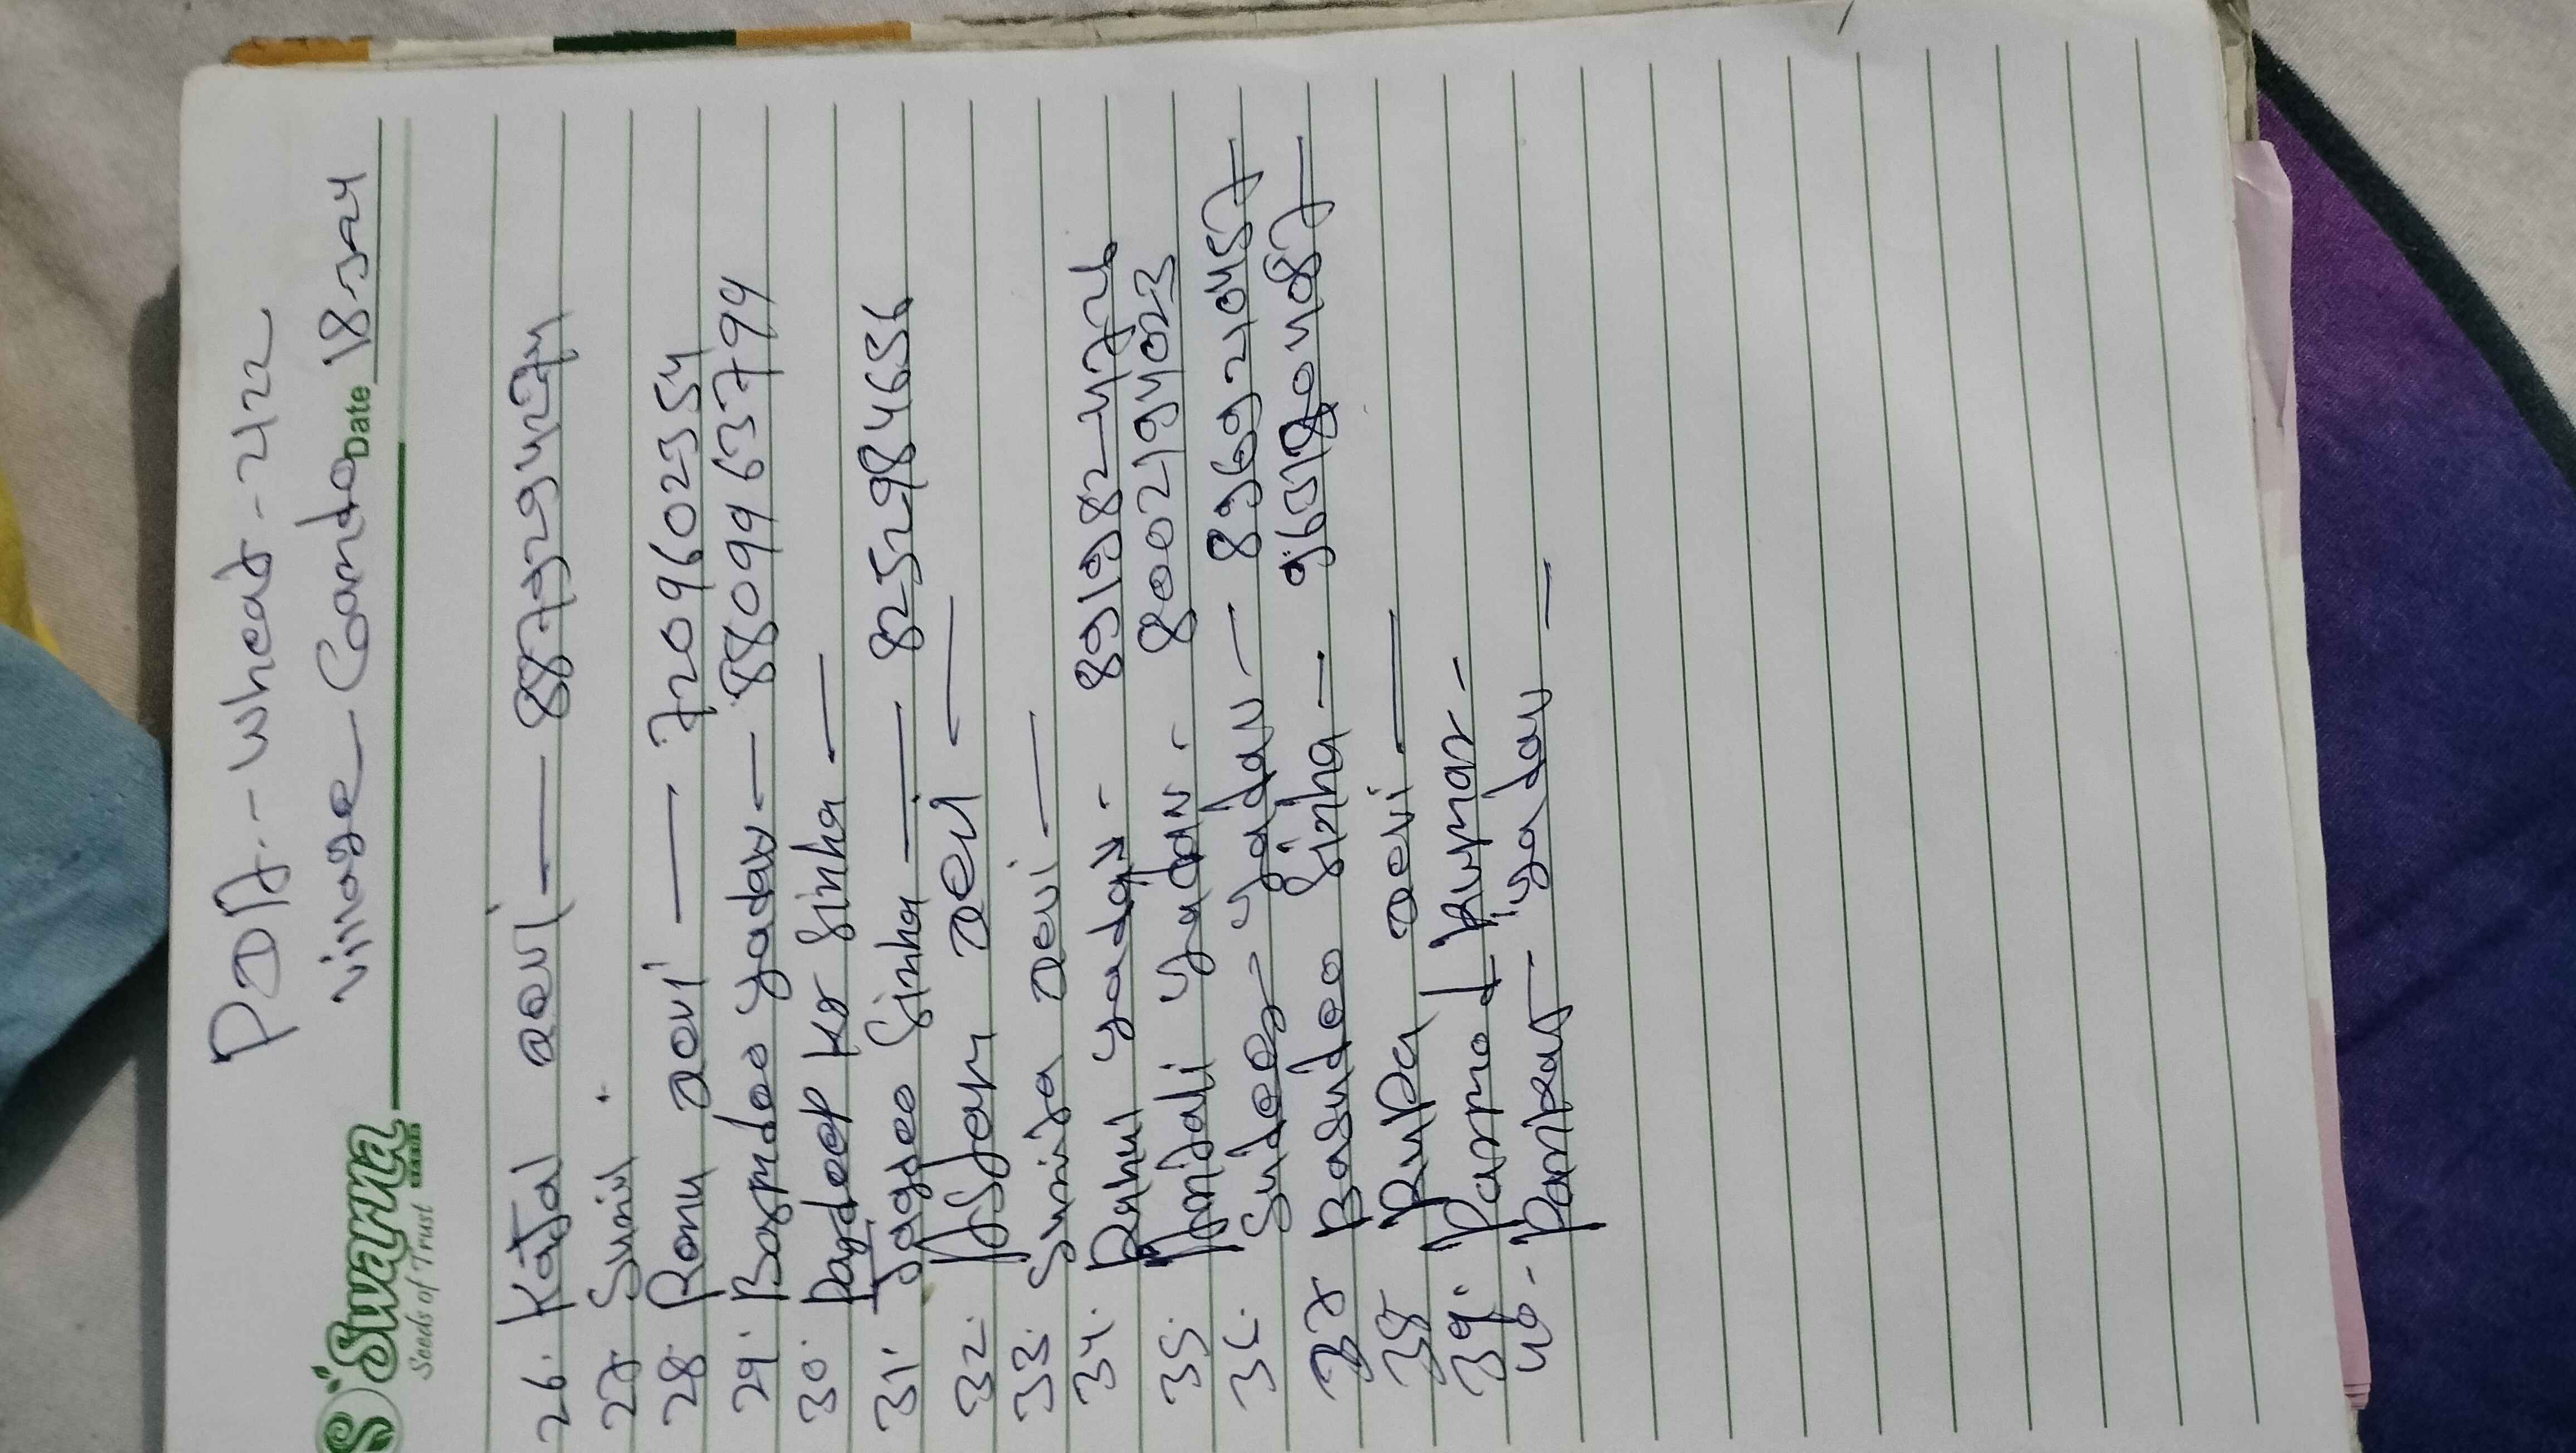 PDA.- Wheat - 2422
Village - Coando
Swarna
Seeds of Trust
Date 18-5-24
26. Kajal Devi —
27. Sunil.
28. Renu Devi — 7209602354
29. Basmdeo yadav — 8809963794
30. Pardeep Kr Sinha —
31. Jagdeo Sinha — 8252984656
32. Devi —
33. Sunita Devi —
34. Rahul yadav - 8919824726
35. yadav. 8002194023
36. yadav — 8969210457
37 Basudeo Sinha —
38 Rupa Devi —
39. Parmod Kumar -
40 - yadav —